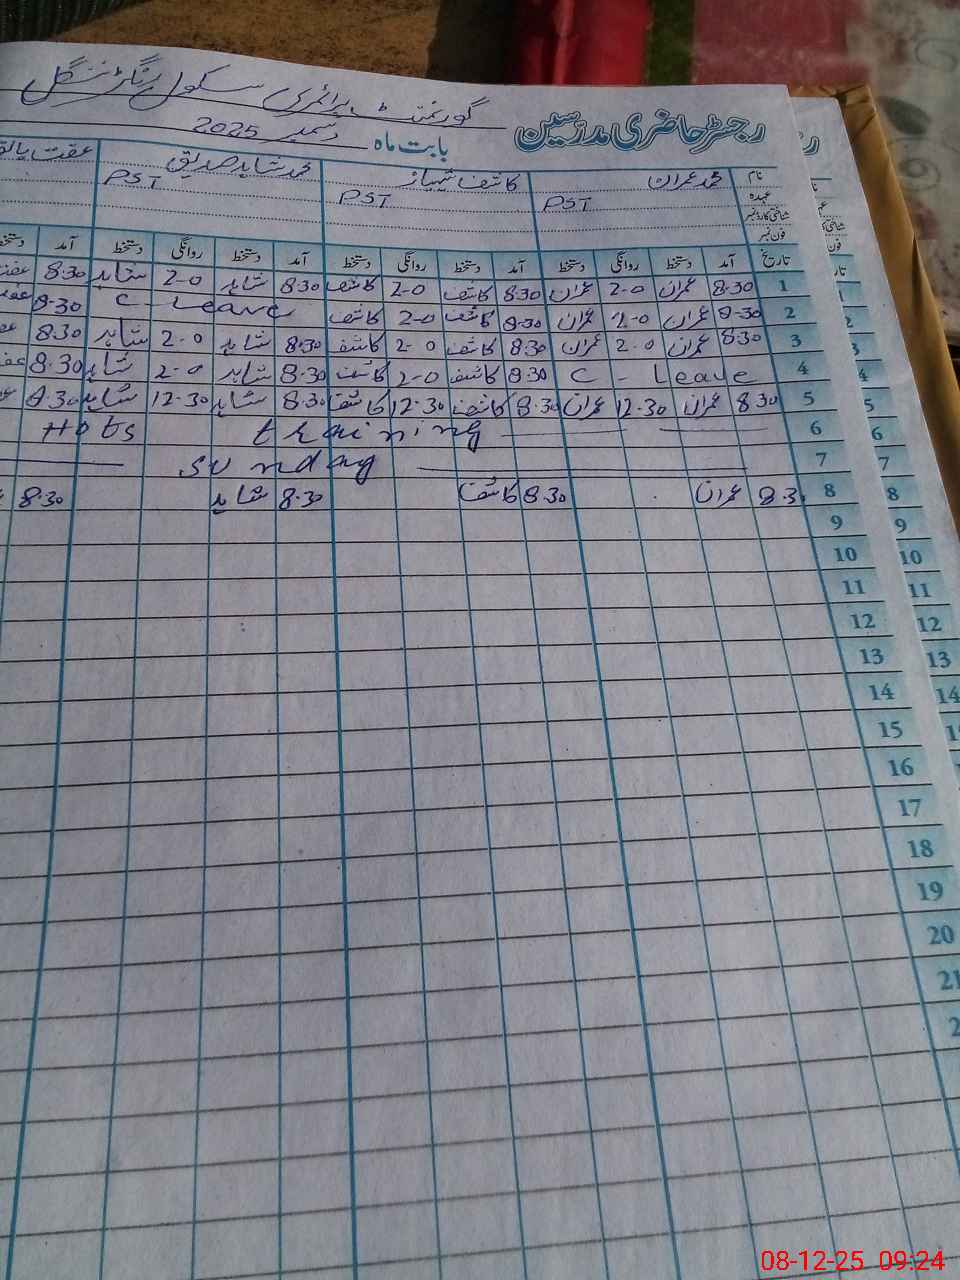 رجسٹر حاضری مدرسین گورنمنٹ پرائمری سکول
بابت ماہ دسمبر 2025
نام محمد عمران کاشف شہباز محمد شاہد صدیق عفت
عہدہ PST PST PST
شناختی کارڈ نمبر
فون نمبر
تاریخ آمد دستخط روانگی دستخط آمد دستخط روانگی دستخط آمد دستخط روانگی دستخط آمد
1 8.30 عمران 2-0 عمران 8.30 کاشف 2-0 کاشف 8.30 شاہد 2-0 شاہد 8.30
2 8.30 عمران 2-0 عمران 8.30 کاشف 2-0 کاشف C - Leave 8.30
3 8.30 عمران 2-0 عمران 8.30 کاشف 2-0 کاشف 8.30 شاہد 2-0 شاہد 8.30
4 C - Leave 8.30 کاشف 2-0 کاشف 8.30 شاہد 2-0 شاہد 8.30
5 8.30 عمران 12.30 عمران 8.30 کاشف 12.30 کاشف 8.30 شاہد 12.30 شاہد 8.30
6 Hots training
7 Sunday
8 8.3 عمران 8.30 کاشف 8.30 شاہد 8.30
9
10
11
12
13
14
15
16
17
18
19
20
21
08-12-25 09:24